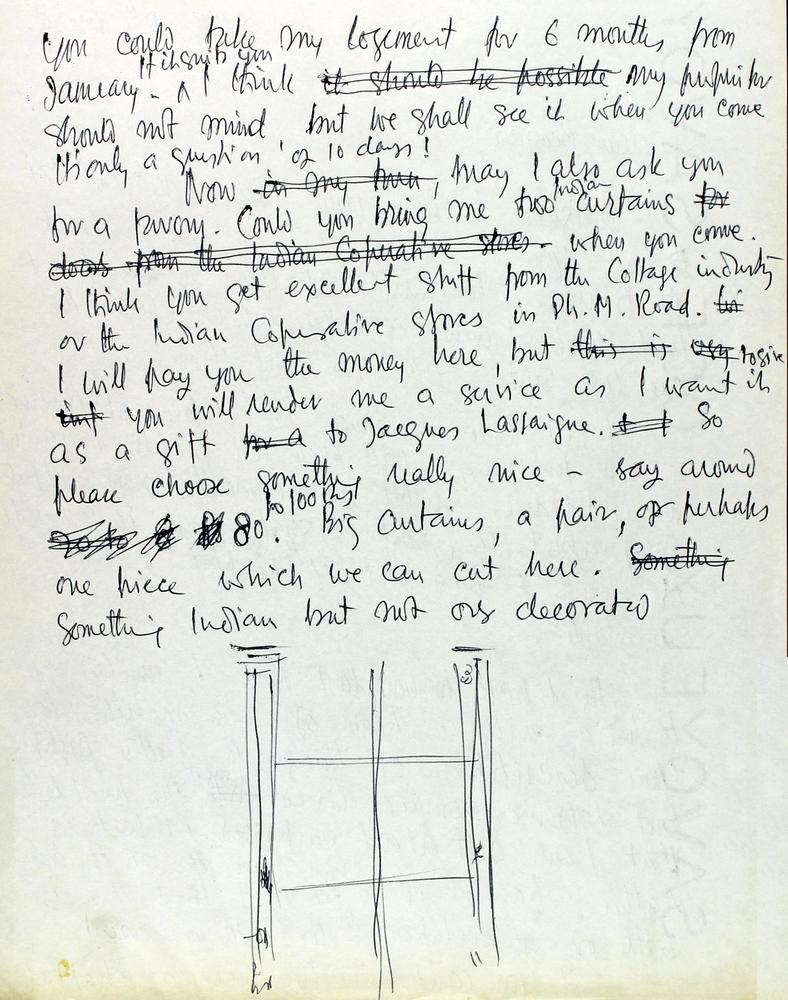 you could take my logement for 6 months from
If it suits you
January - I think it should be possible my proprietor
should not mind but we shall see it when you come
It's only a question of 10 days!
Now in my turn, may I also ask you
for a favour. Could you bring me two Indian curtains for
doors from the Indian Coperative stores. when you come.
I think you get excellent stuff from the Cottage industry
or the Indian Coperative stores in Ph. M. Road.
I will pay you the money here, but this is to give
you will render me a service as I want it
as a gift for a to Jacques Lassaigne. So
please choose something really nice - say around
to 100
80. Big curtains, a pair, or perhaps
one piece which we can cut here. Something
Something Indian but not over decorated